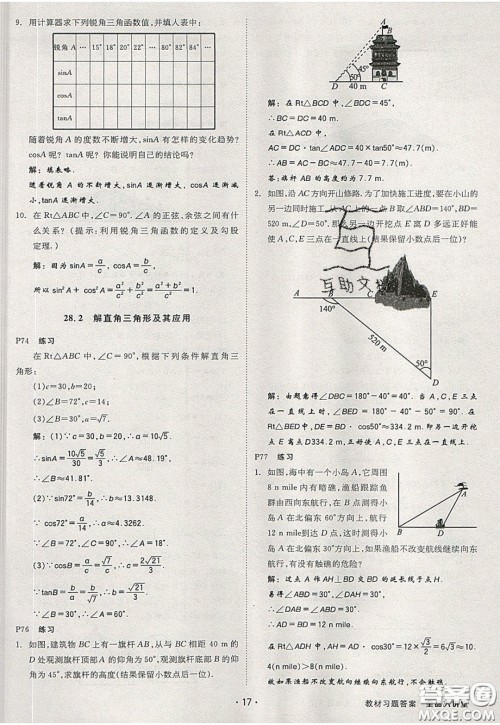 9. 用计算器求下列锐角三角函数值,并填入表中:
锐角 A … 15° 18° 20° 22° … 80° 82° 84° …
sinA
cosA
tanA
随着锐角 A 的度数不断增大,sinA 有怎样的变化趋势?
cosA 呢? tanA 呢? 你能说明自己的结论吗?
解:填表略.
随着锐角 A 的不断增大,sinA 逐渐增大,cosA 逐渐减
小,tanA 逐渐增大.
10. 在 Rt△ABC 中,∠C=90°,∠A 的正弦、余弦之间有
什么关系?(提示:利用锐角三角函数的定义及勾股
定理.)
解:因为 sinA=a/c,cosA=b/c,
所以 sin²A+cos²A=a²/c²+b²/c²=(a²+b²)/c²=c²/c²=1.
28.2 解直角三角形及其应用
P74 练习
在 Rt△ABC 中,∠C=90°,根据下列条件解直角三
角形:
(1)c=30,b=20;
(2)∠B=72°,c=14;
(3)∠B=30°,a=√7.
解:(1)∵c=30,b=20,∴a=10√5.
sinA=10√5/30=√5/3,∴∠A≈48.19°.
∴∠B≈41.81°.
(2)∵sin72°=b/14,∴b≈13.3.
∵cos72°=a/14,∴a≈4.33.
∵∠B=72°,∴∠A=18°.
(3)∵cosB=a/c,∴√3/2=√7/c,∴c=2√21/3.
∵tanB=b/a,∴√3/3=b/√7,∴b=√21/3.
∵∠B=30°,∴∠A=60°.
P76 练习
1. 如图,建筑物 BC 上有一旗杆 AB,从与 BC 相距 40 m 的
D 处观测旗杆顶部 A 的仰角为 50°,观测旗杆底部 B 的
仰角为 45°,求旗杆的高度(结果保留小数点后一位).
A
B
50° 45°
D 40 m C
解:在 Rt△BCD 中,∠BDC=45°,
∴BC=DC=40 m.
在 Rt△ACD 中,
AC=DC·tan∠ADC=40×tan50°≈47.7(m).
∴AB=AC-BC≈47.7-40=7.7(m).
答:旗杆 AB 的高度约为 7.7 m.
2. 如图,沿 AC 方向开山修路.为了加快施工进度,要在小山的
另一边同时施工,从 AC 上的一点 B 取∠ABD=140°,BD=
520 m,∠D=50°.那么另一边开挖点 E 离 D 多远正好能
使 A,C,E 三点在一直线上(结果保留小数点后一位)?
互助文
A B C E
140°
520 m
50°
D
解:由题意得∠DBC=180°-40°=40°.当 A,C,E 三点
在一直线上时,∠BED=180°-40°-50°=90°.
在 Rt△BED 中,DE=BD·cos50°≈334.2(m).即另一边开挖
点 E 离 D334.2 m,正好使 A,C,E 三点在一直线上.
P77 练习
1. 如图,海中有一个小岛 A,它周围
8 n mile 内有暗礁.渔船跟踪鱼
群由西向东航行,在 B 点测得小
岛 A 在北偏东 60°方向上,航行
12 n mile 到达 D 点,这时测得小岛
A 在北偏东 30°方向上.如果渔船不改变航线继续向东
航行,有没有触礁的危险?
A
B D
解:过点 A 作 AH⊥BD 交 BD 的延长线于点 H.
易得∠ABD=30°,∠BAD=30°,
∴AD=BD=12 n mile.
在 Rt△ADH 中,AH=AD·cos30°=12×√3/2≈10.
4(n mile)>8 n mile.
所以渔船不改变航线继续向东航行,没有触礁的危险.
· 17 ·
教材习题答案